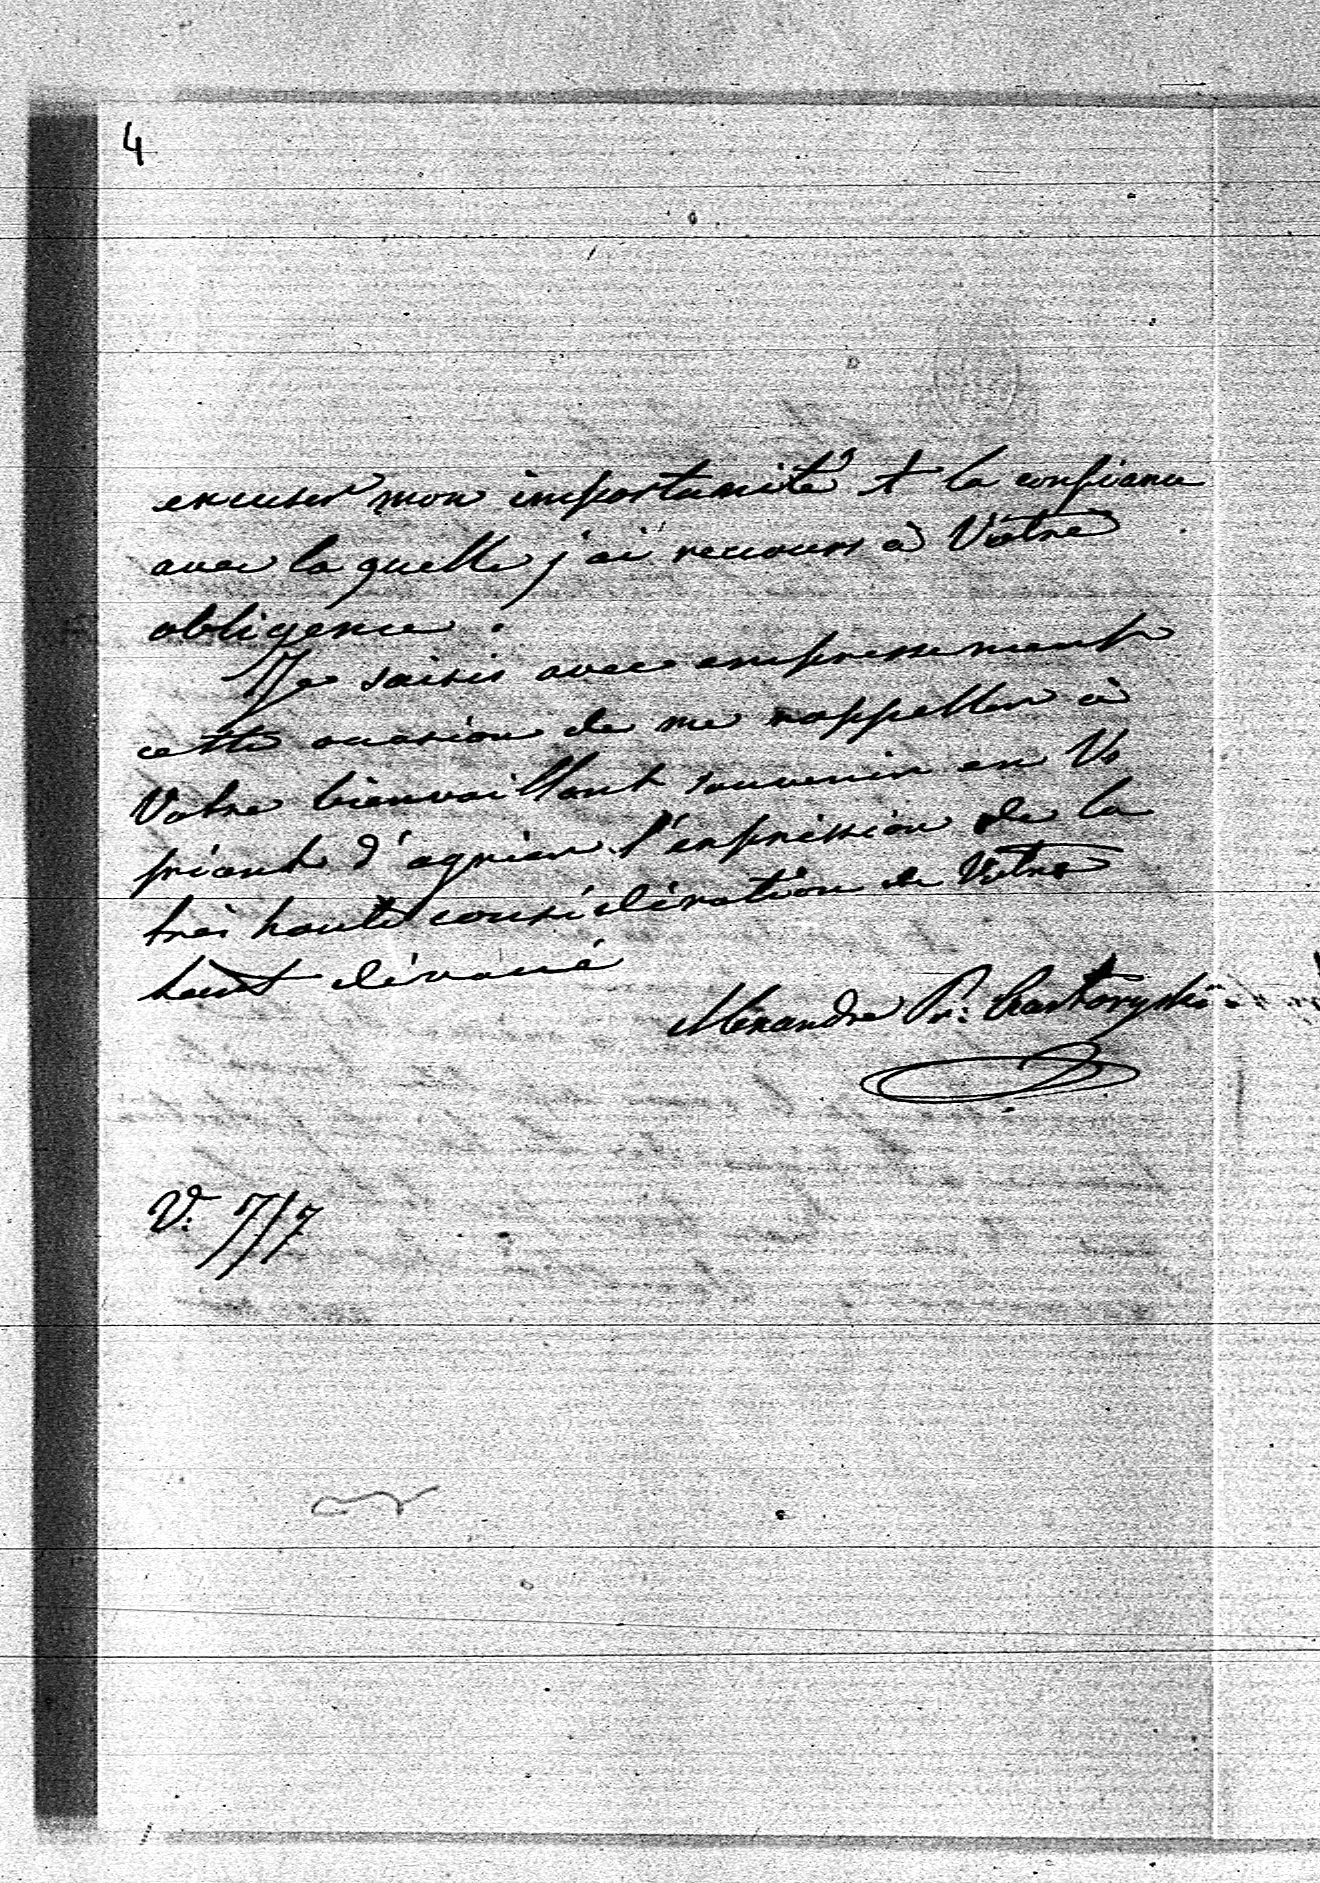 4
excuser mon importunité & la confiance
avec la quelle j'ai recours à Vôtre
obligence.
Je saisis avec empressement
cette occasion de me rappeller à
Votre bienvaillant souvenir en Vs
priant d'agréer l'expression de la
très haute considération de Votre
tout dévoué
Alexandre Pr: Czartoryski
V: 7/7